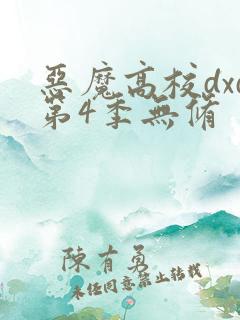 惡魔高校dxd
第4季無脩
陳有勇
未經同意禁止轉載